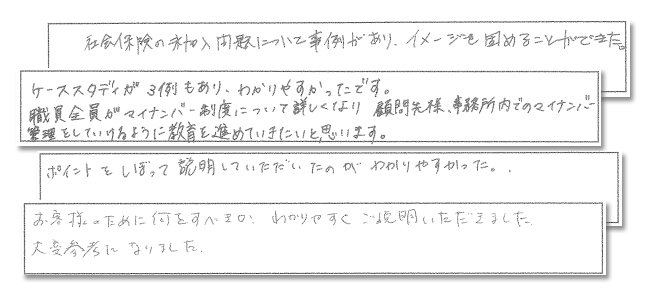 社会保険の未加入問題について事例があり、イメージを固めることができた。
ケーススタディが3例もあり、わかりやすかったです。
職員全員がマイナンバー制度について詳しくなり 顧問先様、事務所内でのマイナンバー
管理をしていけるように教育を進めていきたいと思います。
ポイントをしぼって説明していただいたのがわかりやすかった。
お客様のために何をすべきか、わかりやすくご説明いただきました。
大変参考になりました。